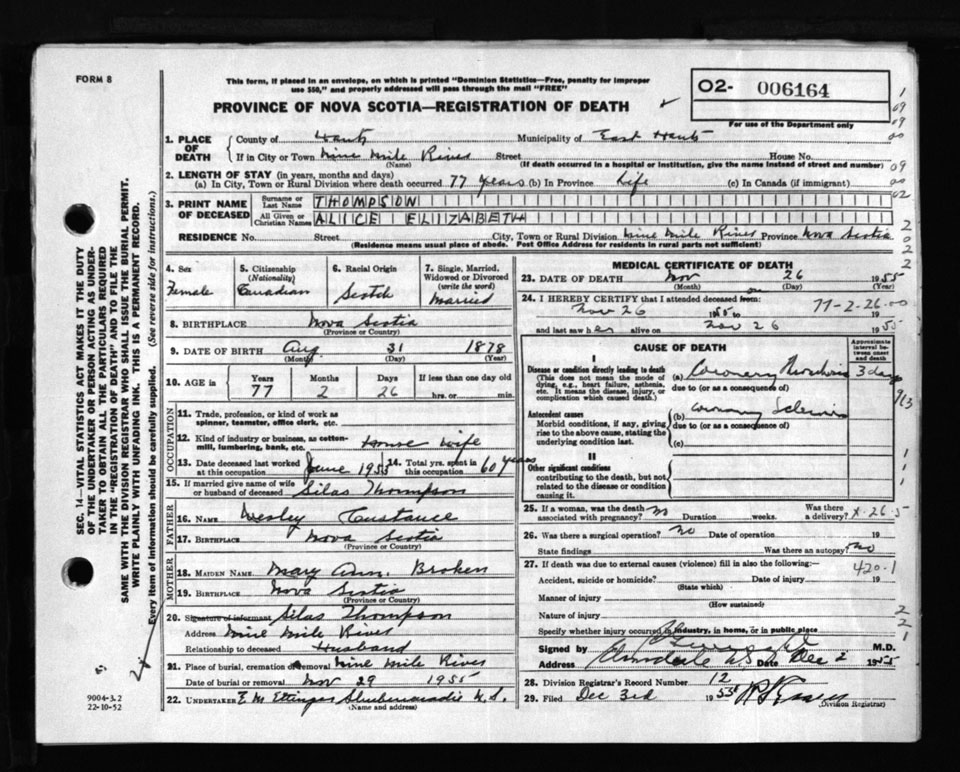 FORM 8
This form, if placed in an envelope, on which is printed "Dominion Statistics—Free, penalty for improper
use $50," and properly addressed will pass through the mail "FREE"
O2- 006164
For use of the Department only
PROVINCE OF NOVA SCOTIA—REGISTRATION OF DEATH
1. PLACE OF DEATH
County of Hants Municipality of East Hants
If in City or Town Nine Mile River Street House No.
(Name) (If death occurred in a hospital or institution, give the name instead of street and number)
2. LENGTH OF STAY (in years, months and days)
(a) In City, Town or Rural Division where death occurred 77 years (b) In Province Life (c) In Canada (if immigrant)
3. PRINT NAME OF DECEASED
Surname or Last Name THOMPSON
All Given or Christian Names ALICE ELIZABETH
RESIDENCE No. Street City, Town or Rural Division Nine Mile River Province Nova Scotia
(Residence means usual place of abode. Post Office Address for residents in rural parts not sufficient)
4. Sex
Female
5. Citizenship (Nationality)
Canadian
6. Racial Origin
Scotch
7. Single, Married, Widowed or Divorced (write the word)
Married
8. BIRTHPLACE Nova Scotia
(Province or Country)
9. DATE OF BIRTH Aug 31 1878
(Month) (Day) (Year)
10. AGE in Years Months Days If less than one day old
77 2 26 hrs. or min.
OCCUPATION
11. Trade, profession, or kind of work as
spinner, teamster, office clerk, etc.
12. Kind of industry or business, as cotton-
mill, lumbering, bank, etc. House wife
13. Date deceased last worked
at this occupation June 1955
14. Total yrs. spent in
this occupation 60 years
15. If married give name of wife
or husband of deceased Silas Thompson
FATHER
16. NAME Wesley Custance
17. BIRTHPLACE Nova Scotia
(Province or Country)
MOTHER
18. MAIDEN NAME Mary Ann. Broken
19. BIRTHPLACE Nova Scotia
(Province or Country)
20. Signature of informant Silas Thompson
Address Nine Mile River
Relationship to deceased Husband
21. Place of burial, cremation or removal Nine Mile River
Date of burial or removal Nov 29 1955
22. UNDERTAKER E M Ettinger Shubenacadie N.S.
(Name and address)
MEDICAL CERTIFICATE OF DEATH
23. DATE OF DEATH Nov 26 1955
(Month) (Day) (Year)
24. I HEREBY CERTIFY that I attended deceased from: on
Nov 26 19 77-2-26.00
and last saw her alive on Nov 26 1955
CAUSE OF DEATH
Approximate interval between onset and death
I
Disease or condition directly leading to death
(This does not mean the mode of
dying, e.g., heart failure, asthenia,
etc. It means the disease, injury, or
complication which caused death.)
(a) Coronary Thrombosis 3 days
due to (or as a consequence of)
Antecedent causes
Morbid conditions, if any, giving
rise to the above cause, stating the
underlying condition last.
(b) Coronary Sclerosis
due to (or as a consequence of)
(c)
II
Other significant conditions
contributing to the death, but not
related to the disease or condition
causing it.
25. If a woman, was the death
associated with pregnancy? No Duration weeks. Was there
a delivery? X-26-5
26. Was there a surgical operation? No Date of operation 19
State findings Was there an autopsy? No
27. If death was due to external causes (violence) fill in also the following: 420.1
Accident, suicide or homicide? Date of injury 19
(State which)
Manner of injury
(How sustained)
Nature of injury
Specify whether injury occurred in industry, in home, or in public place
Signed by M.D.
Address Elmsdale N.S. Date Dec 2 1955
28. Division Registrar's Record Number 12
29. Filed Dec 3rd 1955
(Division Registrar)
SEC. 14—VITAL STATISTICS ACT MAKES IT THE DUTY
OF THE UNDERTAKER OR PERSON ACTING AS UNDER-
TAKER TO OBTAIN ALL THE PARTICULARS REQUIRED
IN THE "REGISTRATION OF DEATH" AND TO FILE THE
SAME WITH THE DIVISION REGISTRAR WHO SHALL ISSUE THE BURIAL PERMIT.
WRITE PLAINLY WITH UNFADING INK. THIS IS A PERMANENT RECORD.
Every item of information should be carefully supplied. (See reverse side for instructions.)
9004-3.2
22-10-52